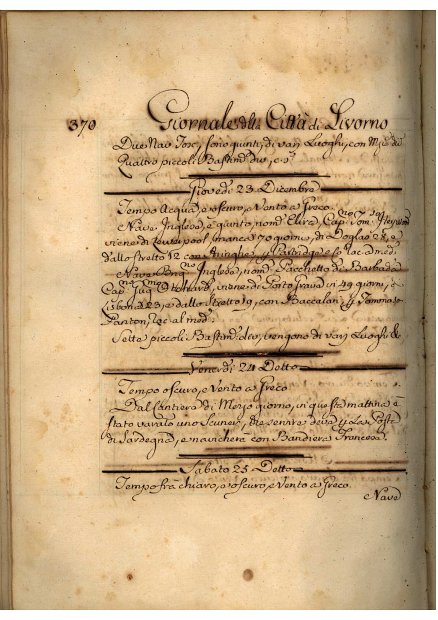 370 Giornale della Città di Livorno
Due Navi Tosc, sono giunti, di varj Luoghi, con
Quattro piccoli Bastim
Giovedì 23 Dicembre
Tempo Acqua, e oscuro, e Vento a Greco.
Nave Inglese, è giunto, nom Elira, Cap
viene di Leverpool, manca 70 giorni, di 28, e
dallo stretto 12 con Aringhe, y e lo rac. al med
Nave Inglese, nom Pacchetto di Barbada
Cap viene di Porto Grava in 49 giorni, di
Lisbona 23, e dallo Stretto 19, con Baccalari, y
Panton, rac al med
Sette piccoli Bastim vengono di varj Luoghi &
Venerdì 24 Detto
Tempo oscuro, e Vento a Greco
Dal Cantiere di Mezo giorno, in questa mattina è
stato varato uno Scuner, che servire deva y La Posta
di Sardegna, e navicherà con Bandiera Francesa.
Sabato 25 Detto
Tempo fra chiaro, e oscuro, e Vento a Greco.
Nave